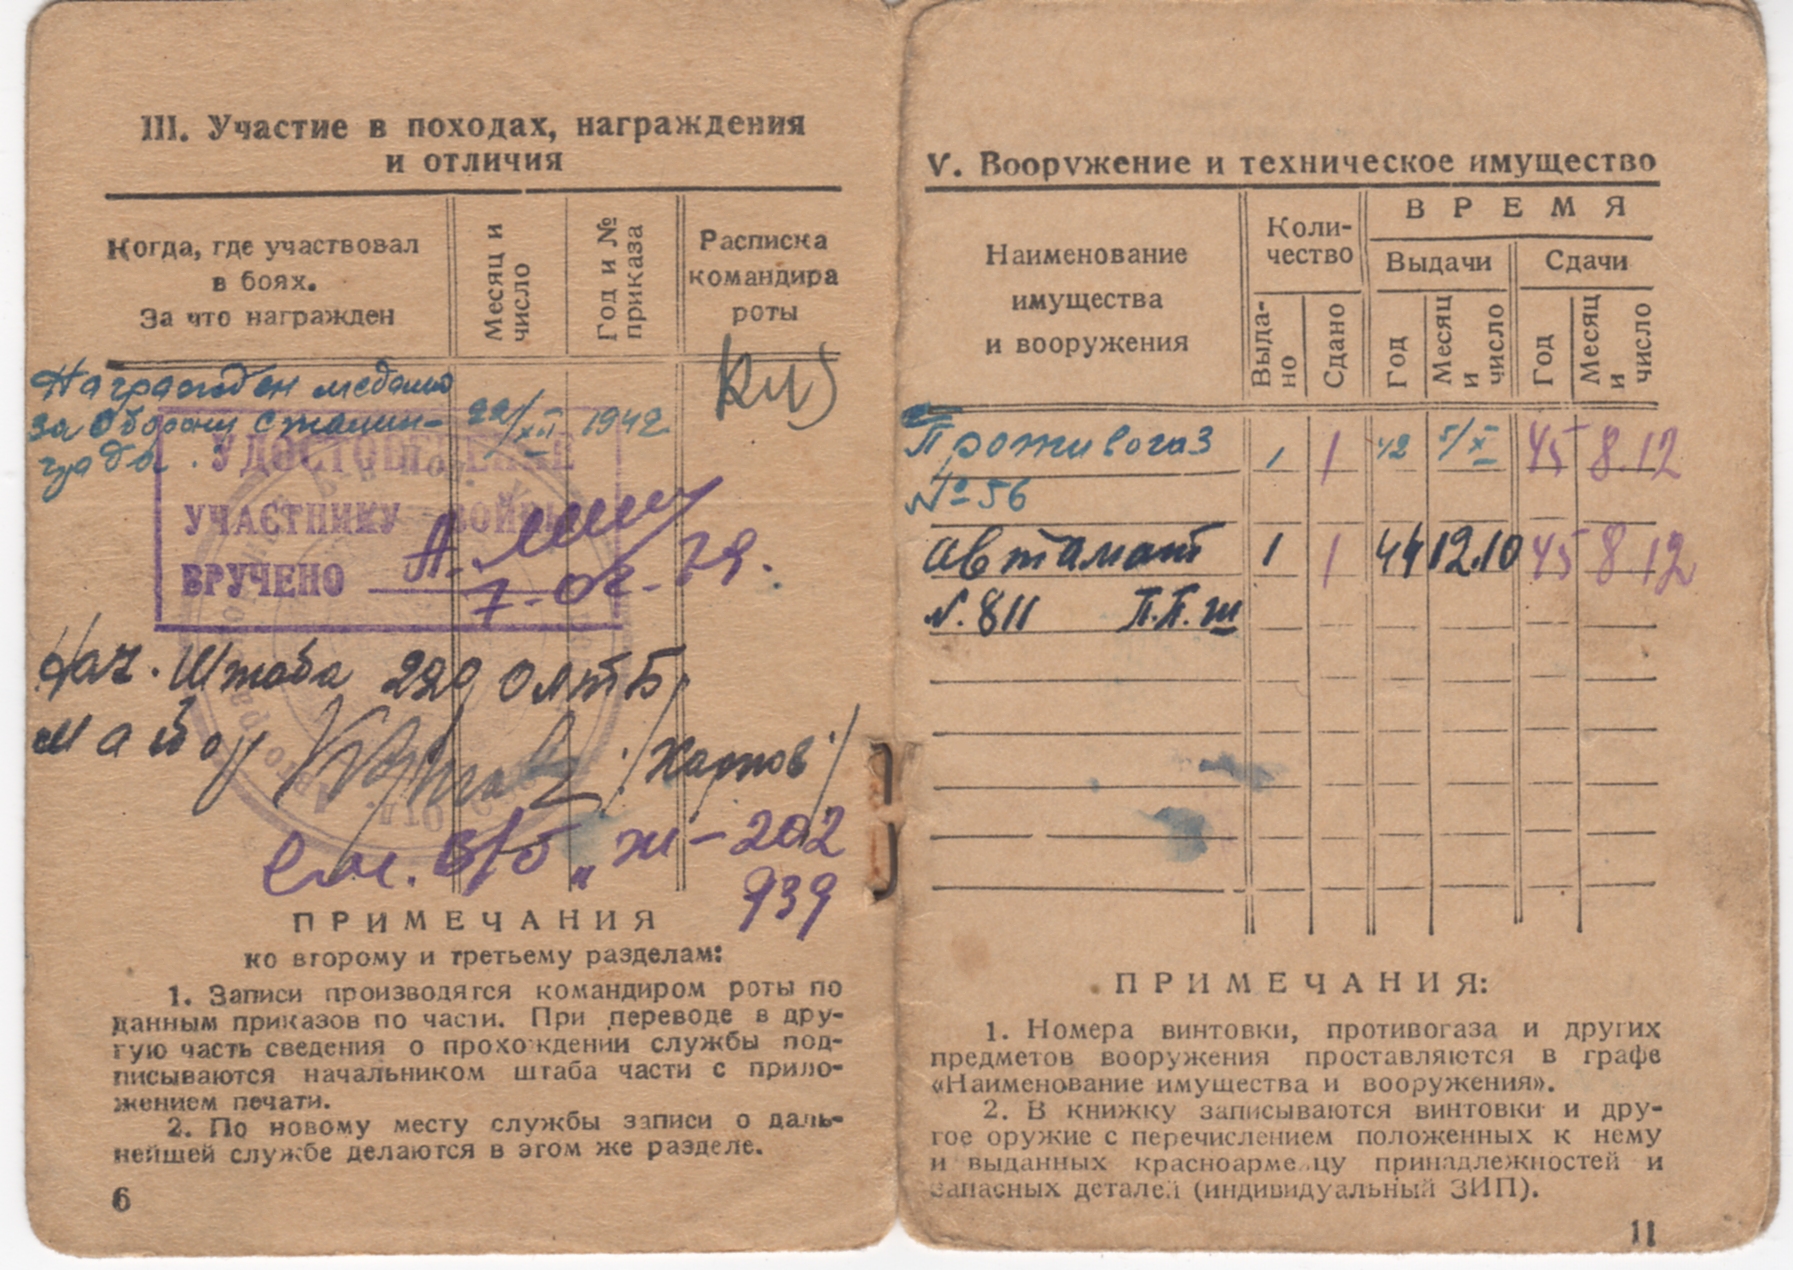 III. Участие в походах, награждения
и отличия
Когда, где участвовал
в боях.
За что награжден
Месяц и
число
Год и №
приказа
Расписка
командира
роты
Награжден медалью
за Оборону Сталин-
града.
22/XII 1942
УДОСТОВЕРЕНИЕ
УЧАСТНИКУ ВОЙНЫ
ВРУЧЕНО
7-02-79.
Нач. Штаба 220 олтБ
Майор /Харпов/
см. в/б „Ж-202
939
ПРИМЕЧАНИЯ
ко второму и третьему разделам:
1. Записи производятся командиром роты по
данным приказов по части. При переводе в дру-
гую часть сведения о прохождении службы под-
писываются начальником штаба части с прило-
жением печати.
2. По новому месту службы записи о даль-
нейшей службе делаются в этом же разделе.
6
V. Вооружение и техническое имущество
Наименование
имущества
и вооружения
Коли-
чество
ВРЕМЯ
Выдачи
Сдачи
Выда-
но
Сдано
Год
Месяц
и
число
Год
Месяц
и
число
Противогаз 1 1 42 5/X 45 8.12
№ 56
Автамат 1 1 44 12.10 45 8 12
N. 811 П.П.Ш
ПРИМЕЧАНИЯ:
1. Номера винтовки, противогаза и других
предметов вооружения проставляются в графе
«Наименование имущества и вооружения».
2. В книжку записываются винтовки и дру-
гое оружие с перечислением положенных к нему
и выданных красноармейцу принадлежностей и
запасных деталей (индивидуальный ЗИП).
11